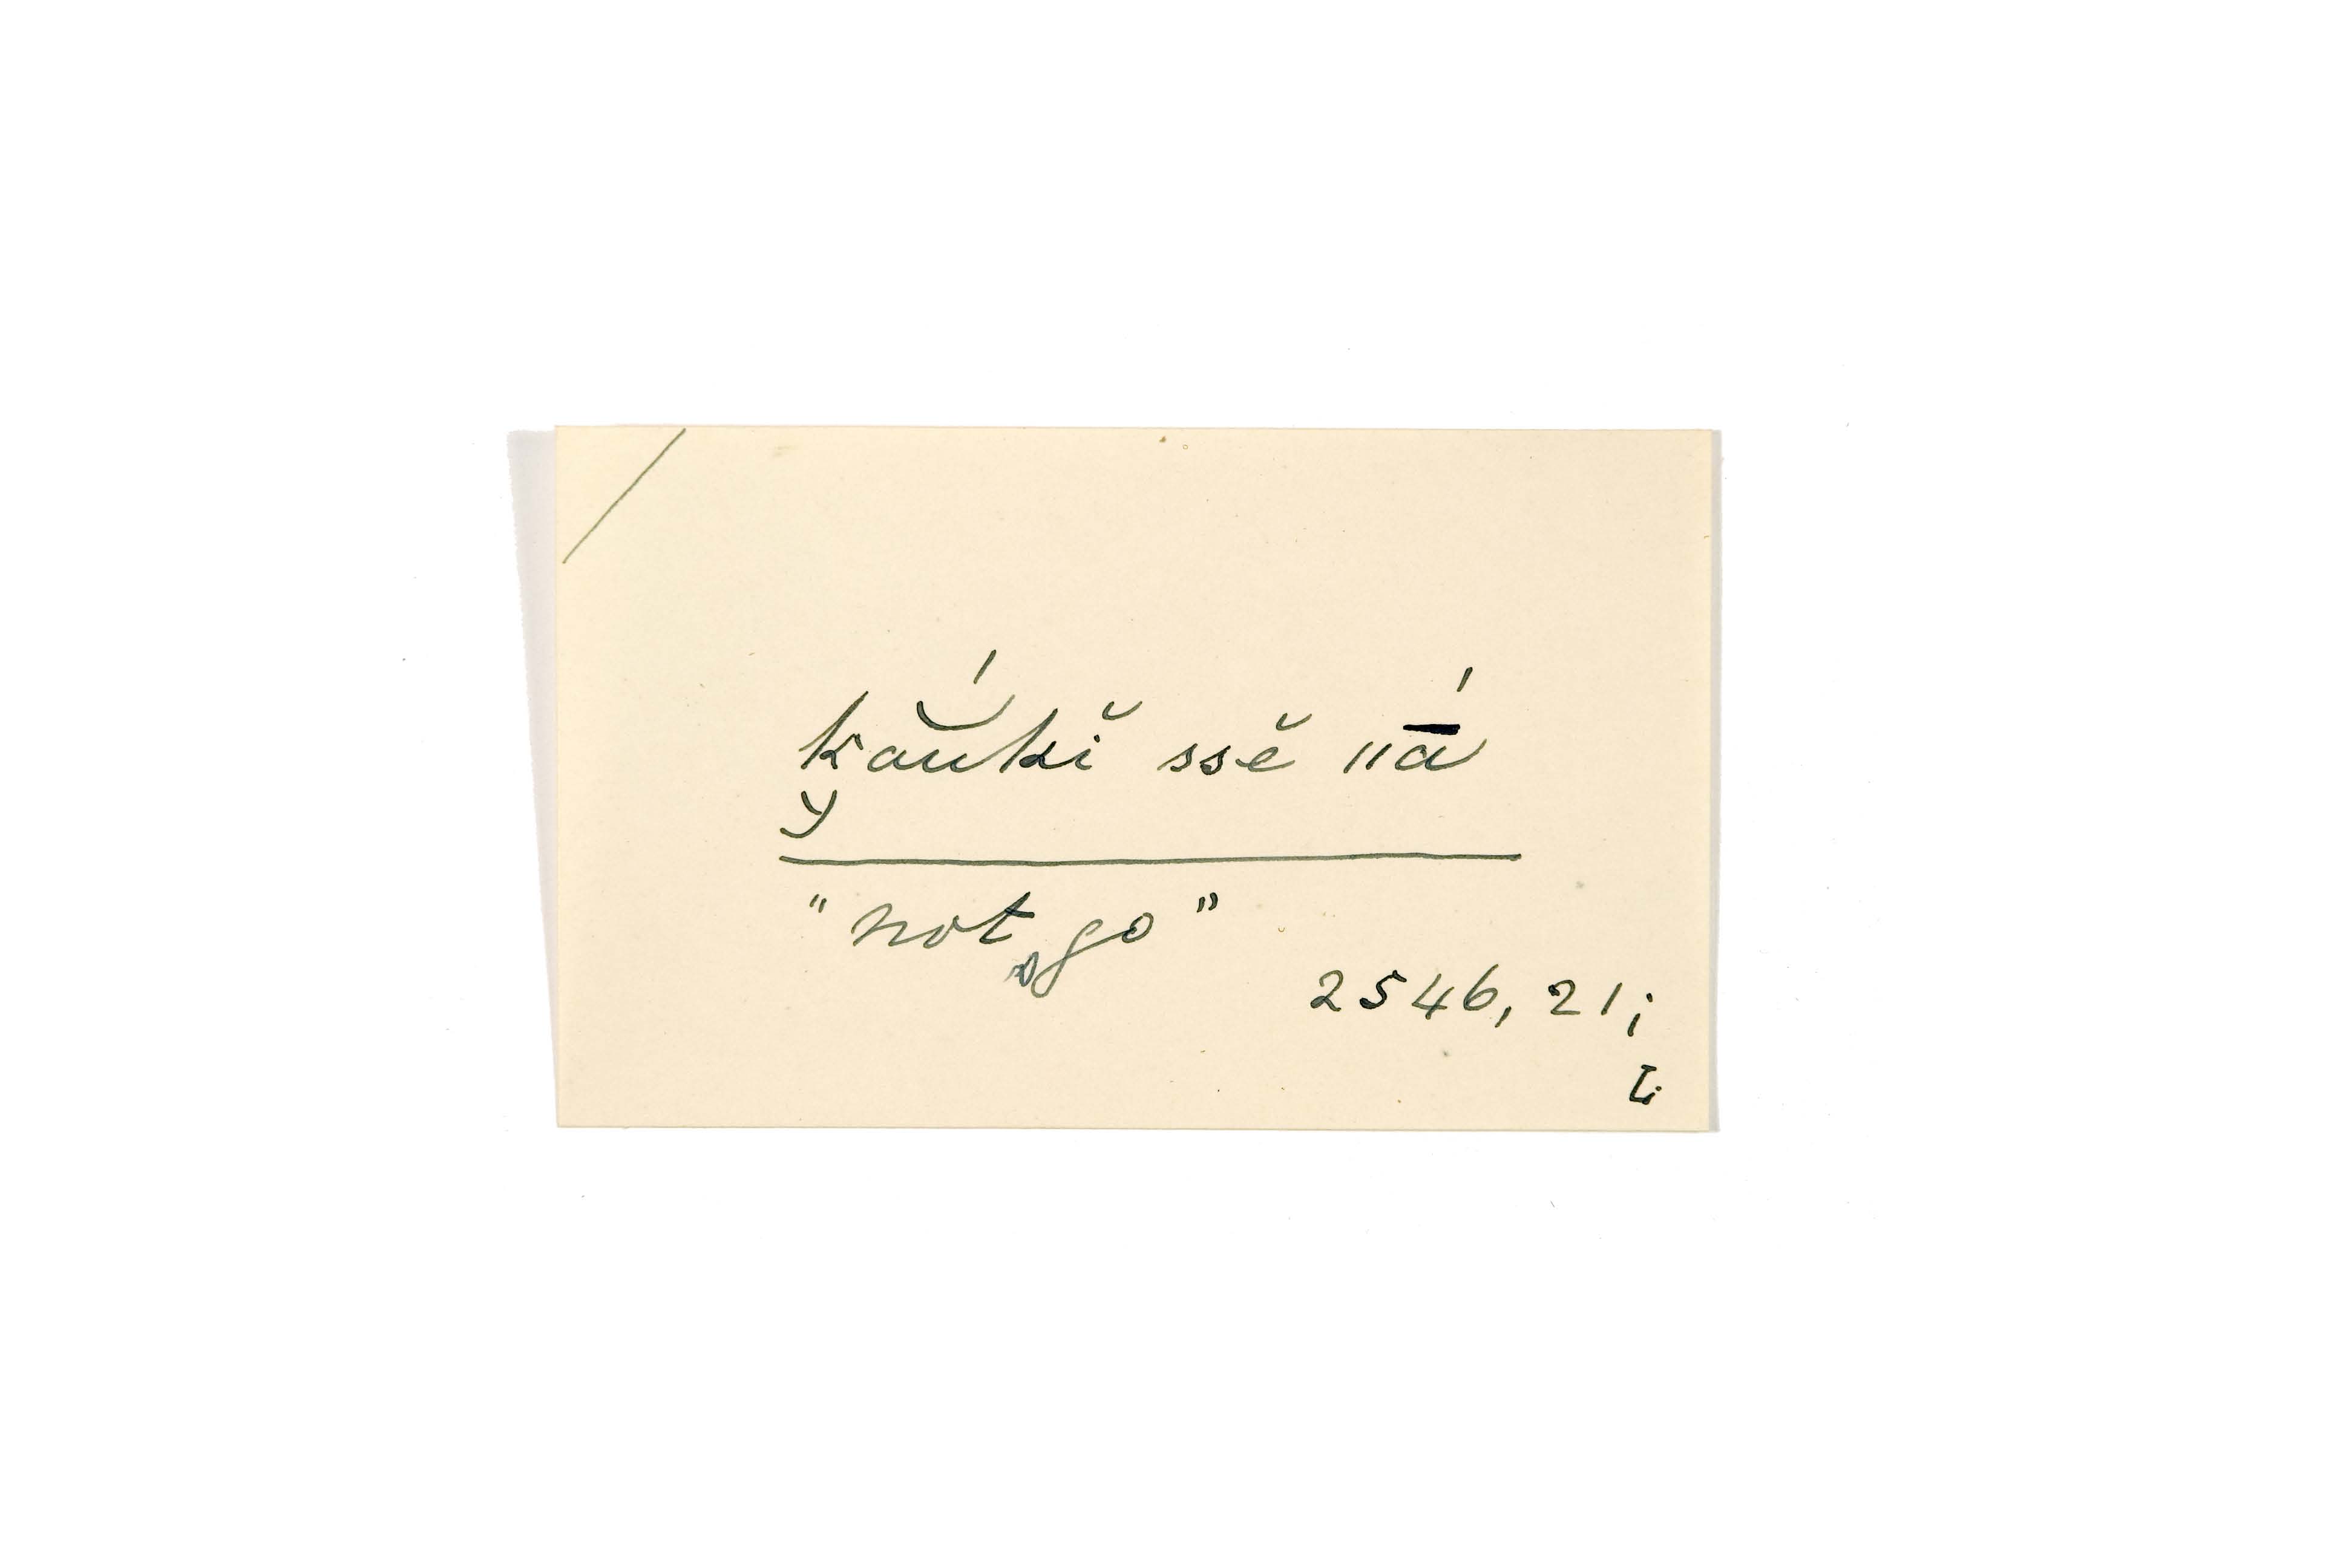 kăŭ́kĭ ssĕ ǁā́
"not go"
2546, 21;
L: